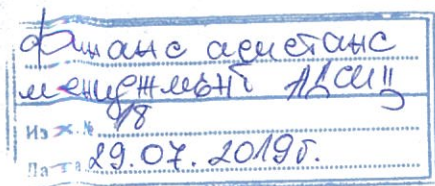 Финанс асистанс
мениджмънт АДСИЦ
Изх. № 48
Дата 29.07.2019г.